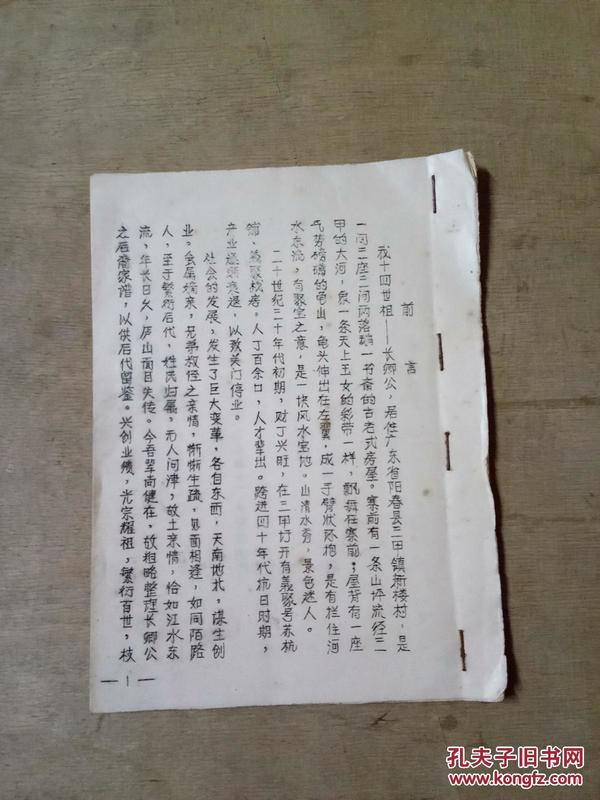 前言
我十四世祖——长卿公，居住广东省阳春县三甲镇新楼村，是
一间二座三间两落 一书斋的古老式房屋。寨前有一条山坪流经三
甲的大河，象一条天上玉女的彩带一样，飘舞在寨前；屋背有一座
气势磅礴的龟山，龟头伸出在左翼，成一手臂状环抱，是有拦住河
水东流，有聚宝之意，是一块风水宝地。山清水秀，景色迷人。
二十世纪三十年代初期，财丁兴旺，在三甲圩开有义聚号苏杭
馆、义聚栈房。人丁百余口，人才辈出。跨进四十年代抗日时期，
产业逐渐衰退，以致关门停业。
社会的发展，发生了巨大变革，各自东西，天南地北，谋生创
业。会属嫡亲，兄弟叔侄之亲情，渐渐生疏，见面相逢，如同陌路
人，至于繁衍后代，姓氏归属，无人问津，故土亲情，恰如江水东
流，年长日久，庐山面目失传。今吾辈尚健在，故粗略整理长卿公
之后裔家谱，以供后代留鉴。兴创业绩，光宗耀祖，繁衍百世，枝
—1—
孔夫子旧书网
www.kongfz.com